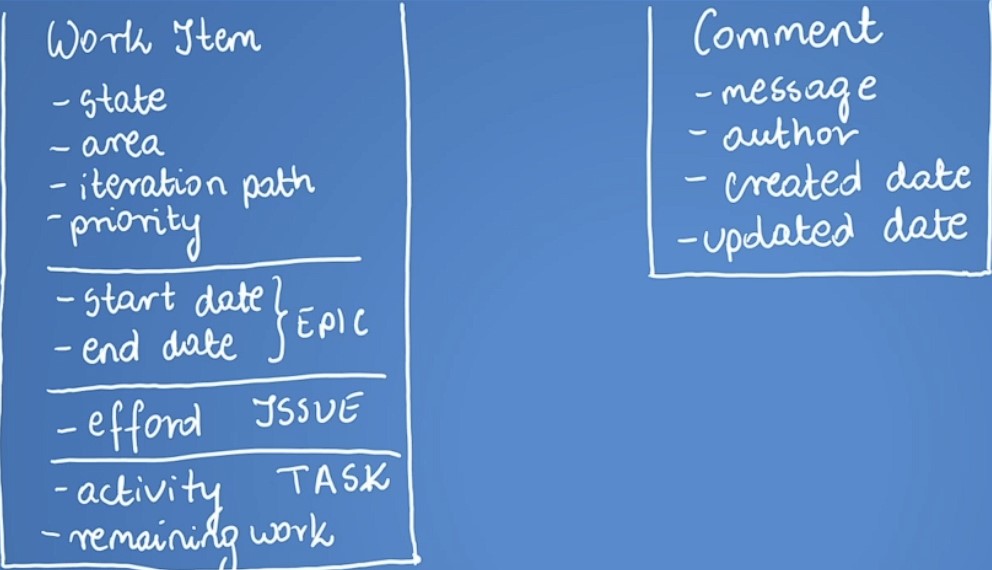 Work Item
- state
- area
- iteration path
- priority
- start date
- end date
EPIC
- efford ISSUE
- activity TASK
- remaining work
Comment
- message
- author
- created date
- updated date